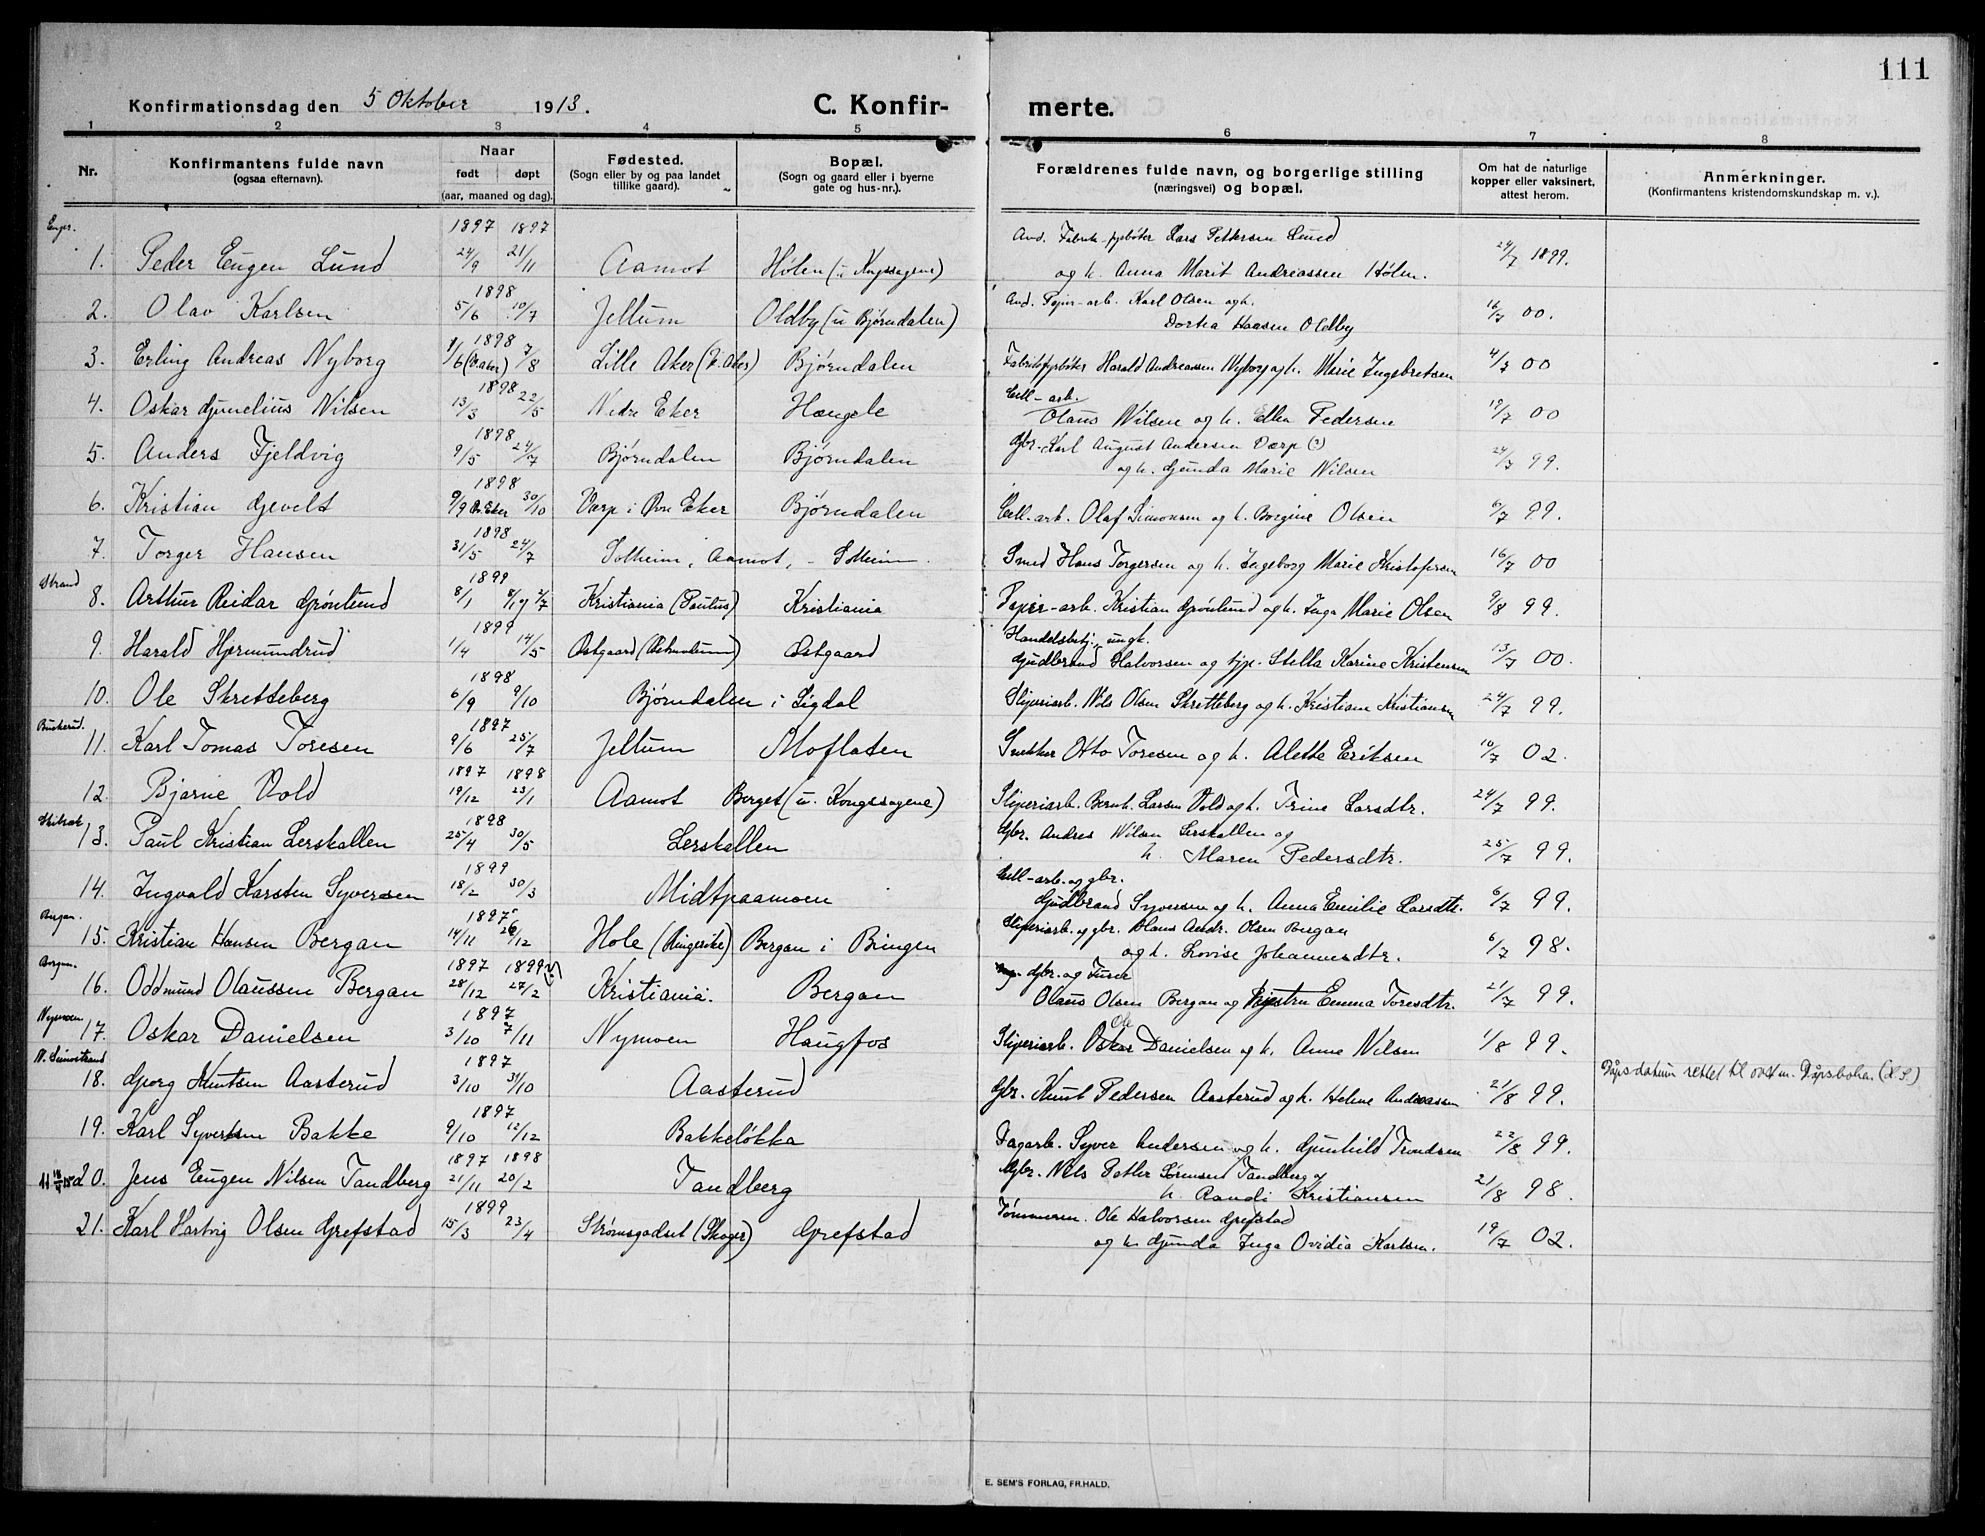 111
Konfirmationsdag den 5 Oktober 1913. C. Konfir- merte.
1 2 3 4 5 6 7 8
Nr. Konfirmantens fulde navn (ogsaa efternavn). Naar født døpt (aar, maaned og dag). Fødested. (Sogn eller by og paa landet tillike gaard). Bopæl. (Sogn og gaard eller i byerne gate og hus-nr.). Forældrenes fulde navn, og borgerlige stilling (næringsvei) og bopæl. Om hat de naturlige kopper eller vaksinert, attest herom. Anmerkninger. (Konfirmantens kristendomskundskap m. v.).
Enger. 1897 1897 Lars Pettersen Lund
1. Peder Eugen Lund 24/9 21/11 Aamot Hølen (u Kongssagene) og h. Anna Marit Andreassen Hølen. 24/7 1899.
1898 Karl Olsen og h.
2. Olav Karlsen 5/6 10/7 Jellum Oldby (u Bjørndalen) Dortea Haasen Oldby 16/7 00.
1898
3. Erling Andreas Nyborg 1/6 (V. aker) 7/8 Lille Aker (V. Aker) Bjørndalen Harald Andreassen Nyborg og h. Marie Ingebretsen 4/7 00
1898 Cell-arb.
4. Oskar Gunelius Nilsen 13/3 22/5 Nedre Eker Haugele Olaus Nilsen og h. Ellen Pedersen 19/7 00
1898 Gbr. Karl August Andersen Værp (?)
5. Anders Fjeldvig 9/5 24/7 Bjørndalen Bjørndalen og h. Gunda Marie Nilsen 24/7 99.
1898
6. Kristian Gevelt 9/9 Ø. Eker 30/10 Værp i Øvre Eker Bjørndalen Cell-arb. Olaf Simonsen og h. Borgine Olsen 6/7 99.
1898
7. Torger Hansen 31/5 24/7 Solheim, Aamot, - Solheim. Smed Hans Torgersen og h. Ingeborg Marie Kristofersen 16/7 00
Strand 1899
8. Arthur Reidar Grönlund 8/1 Kristiania (Paulus) Kristiania Papir-arb. Kristian Grönlund og h. Inga Marie Olsen 9/8 99.
1899 Handelsbetj., ungk.
9. Harald Hermundrud 1/4 14/5 Østgaard Østgaard Gudbrand Halvorsen og pje. Stella Karine Kristensen 13/7 00.
1898
10. Ole Skretteberg 6/9 9/10 Bjørndalen i Sigdal Sliperiarb. Nils Olsen Skretteberg og h. Kristiane Kristiansen 24/7 99.
Buskerud. 1897
11. Karl Tomas Toresen 9/6 25/7 Jellum Moflaten Snekker Otto Toresen og h. Alette Eriksen 10/7 02.
1897 1898
12. Bjarne Vold 19/12 23/1 Aamot Berget (u. Kongssagene) Sliperiarb. Bernh. Larsen Vold og h. Trine Larsdtr. 24/7 99.
1898 Gbr. Andres Nilsen Lerskallen og
13. Paul Kristian Lerskallen 25/4 30/5 Lerskallen h. Maren Pedersdtr. 25/7 99.
1899 Cell-arb. og gbr.
14. Ingvald Karsten Syversen 18/2 30/3 Midtpaamoen Gudbrand Syversen og h. Anna Emilie Larsdtr. 6/7 99.
Bergan. 1897 Sliperiarb. og gbr. Olaus Andr. Olsen Bergan
15. Kristian Hansen Bergan 14/11 26/12 Hole (Ringerike) Bergan i Bringen og h. Lovise Johannesdtr. 6/7 98.
Bergan. 1897 1899 (?) gbr. og
16. Oddmund Olaussen Bergan 28/12 27/2 Kristiania. Bergan Olaus Olsen Bergan og Emma Toresdtr. 21/7 99.
Nymoen 1897 Ole
17. Oskar Danielsen 3/10 7/11 Nymoen Haugfos Sliperiarb. Oskar Danielsen og h. Anne Nilsen 1/8 99.
N. Simostrand 1897 Dåpsdatum rettet til overensst. m. Dåpsboken
18. Georg Knutsen Aasterud 3/10 31/10 Aasterud Gbr. Knut Pedersen Aasterud og h. Helene Andreassen 21/8 99.
1897
19. Karl Syvertsen Bakke 9/10 12/12 Bakkeløkka Dagarb. Syver Andersen og h. Gunhild Trondsen 22/8 99.
1897 1898 Gbr. Nels Petter Sørensen Tandberg og
20. Jens Eugen Nilsen Tandberg 21/11 20/2 Tandberg h. Randi Kristiansen 21/8 98.
1899 Tømmerm. Ole Halvorsen Grefstad
21. Karl Hartvig Olsen Grefstad 15/3 23/4 Strømsgodset (Skoger) Grefstad og h. Gunda Inga Ovidia Karlsen. 19/7 02.
E. SEM'S FORLAG, FR.HALD.